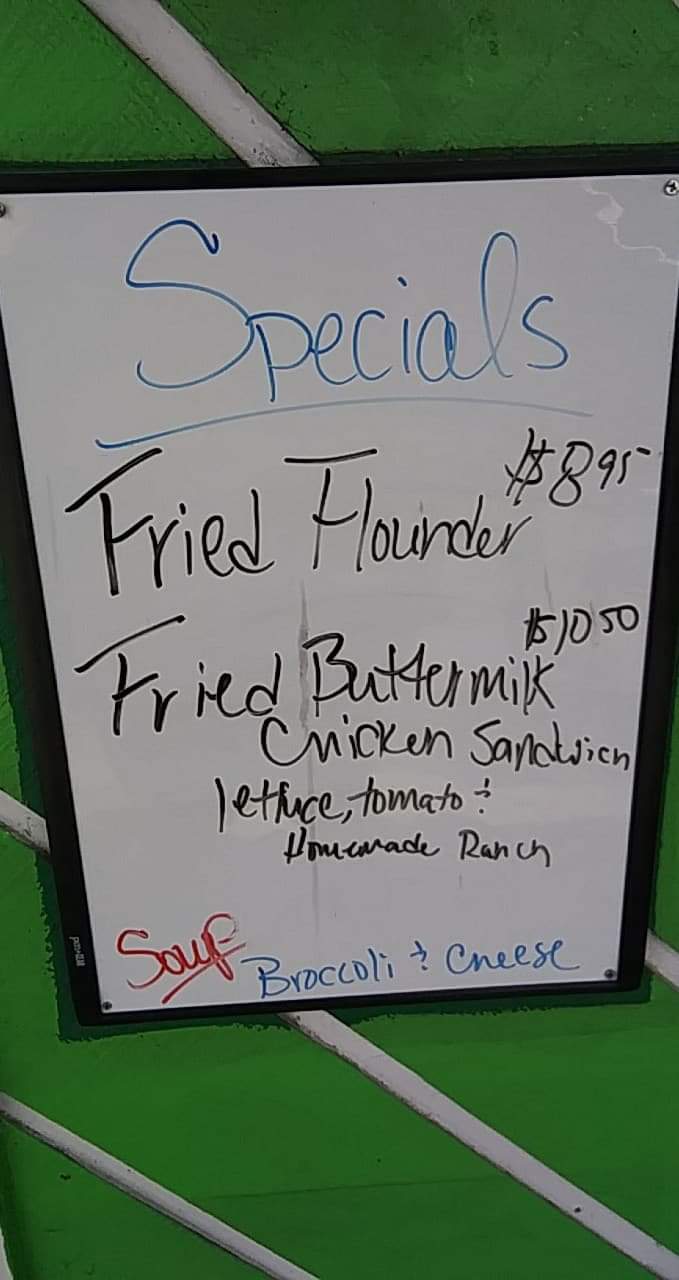 Specials
Fried Flounder $8.95
Fried Buttermilk $10.50
Chicken Sandwich
lettuce, tomato &
Homemade Ranch
Soup Broccoli & Cheese